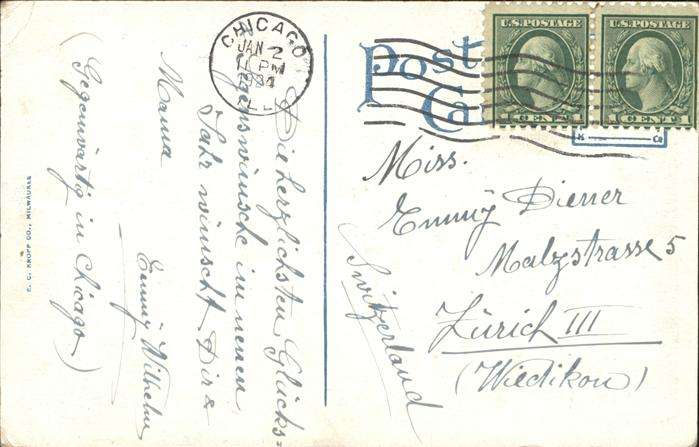 CHICAGO
JAN 2
11 PM
ILL.
Post
Ca
U.S. POSTAGE
U.S. POSTAGE
1 CENT 1
1 CENT 1
Die herzlichsten Glücks-
segenswünsche im neuen
Jahr wünscht Dir &
Mama
Emmy Wilhelm
(Gegenwärtig in Chicago)
E. C. KROPP CO., MILWAUKEE
Miss.
Emmy Diener
Malzstrasse 5
Zürich III
(Wiedikon)
Switzerland